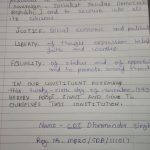 Sovereign Socialist Secular Democratic
Republic and to secure to all
its citizens
JUSTICE, social economic and political
LIBERTY, of thought expression belief
faith and worship
EQUALITY, of status and of opportunity
and to promote among them all
IN OUR CONSTITUENT ASSEMBLY
this twenty-sixth day of november 1949
HEREBY ADOPT ENACT AND GIVE TO
OURSELVES THIS CONSTITUTION.
Name - Dharmender Singh
Reg. No.